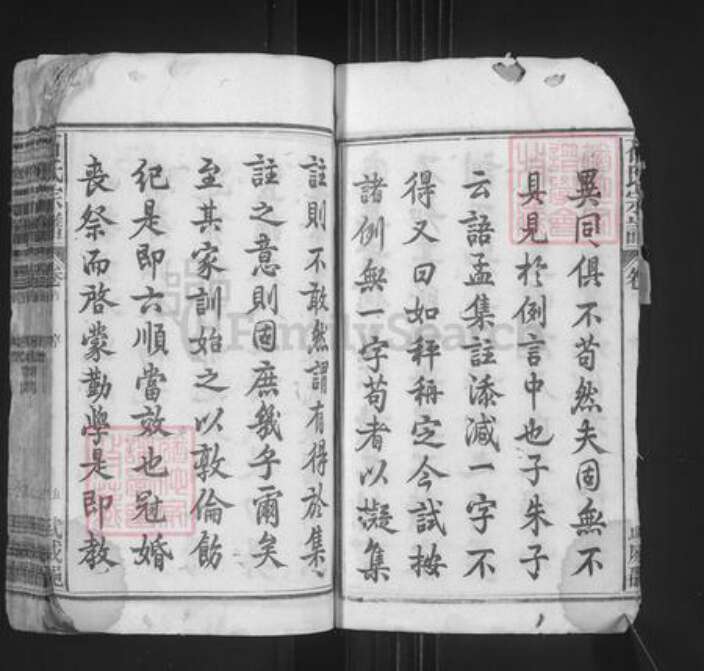 異同俱不苟然夫固無不
具見於例言中也子朱子
云語孟集註添減一字不
得又曰如秤稱定今試按
諸例無一字苟者以擬集
註則不敢然謂有得於集
註之意則固庶幾乎爾矣
至其家訓始之以敦倫飭
紀是即六順當效也冠婚
喪祭而啓蒙勤學是即教
氏宗譜
卷
FamilySearch